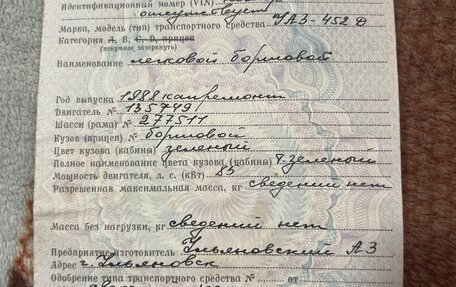 Идентификационный номер (VIN)
отсутствует
Марка, модель (тип) транспортного средства УАЗ-452 Д
Категория А, В, С, D, прицеп
(ненужное зачеркнуть)
Наименование легковой бортовой
Год выпуска 1988 капремонт
Двигатель № 135749
Шасси (рама) № 277511
Кузов (прицеп) № бортовой
Цвет кузова (кабины) зеленый
Полное наименование цвета кузова (кабины) т.зеленый
Мощность двигателя, л. с. (кВт) 85
Разрешенная максимальная масса, кг сведений нет
Масса без нагрузки, кг сведений нет
Предприятие-изготовитель Ульяновский АЗ
Адрес г. Ульяновск
Одобрение типа транспортного средства № от